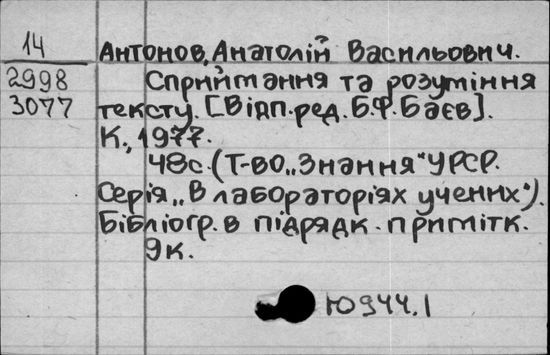 14
Антонов, Анатолій Васильович.
2998
Сприймання та розуміння
3077
тексту. [Відп. ред. Б.Ф. Баєв].
К., 1977.
48с. (Т-во „Знання" УРСР.
Серія „В лабораторіях учених").
Бібліогр. в підрядк. примітк.
9к.
Ю944.1